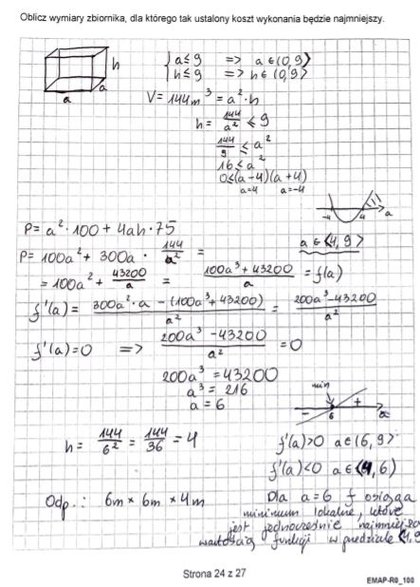 Oblicz wymiary zbiornika, dla którego tak ustalony koszt wykonania będzie najmniejszy.
h
a
a
{a≤9 => a∈(0,9⟩
{h≤9 => h∈(0,9⟩
V=144m³=a²·h
h=144/a² ≤9
144/9 ≤a²
16≤a²
0≤(a-4)(a+4)
a=4 a=-4
-4 4 a
P=a²·100+4ah·75
a∈⟨4,9⟩
P=100a²+300a·144/a² =
=100a²+43200/a = (100a³+43200)/a =f(a)
f'(a)=(300a²·a-(100a³+43200))/a² = (200a³-43200)/a²
f'(a)=0 => (200a³-43200)/a² =0
200a³=43200
a³=216
a=6
min
- 6 + a
h=144/6²=144/36=4
f'(a)>0 a∈(6,9⟩
f'(a)<0 a∈⟨4,6)
Odp.: 6m×6m×4m
Dla a=6 f osiąga
minimum lokalne, które
jest jednocześnie najmniejszą
wartością funkcji w przedziale ⟨4,9
Strona 24 z 27
EMAP-R0_100